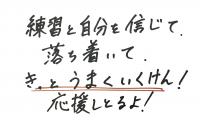 練習と自分を信じて、
落ち着いて、
きっとうまくいくけん！
応援しとるよ！